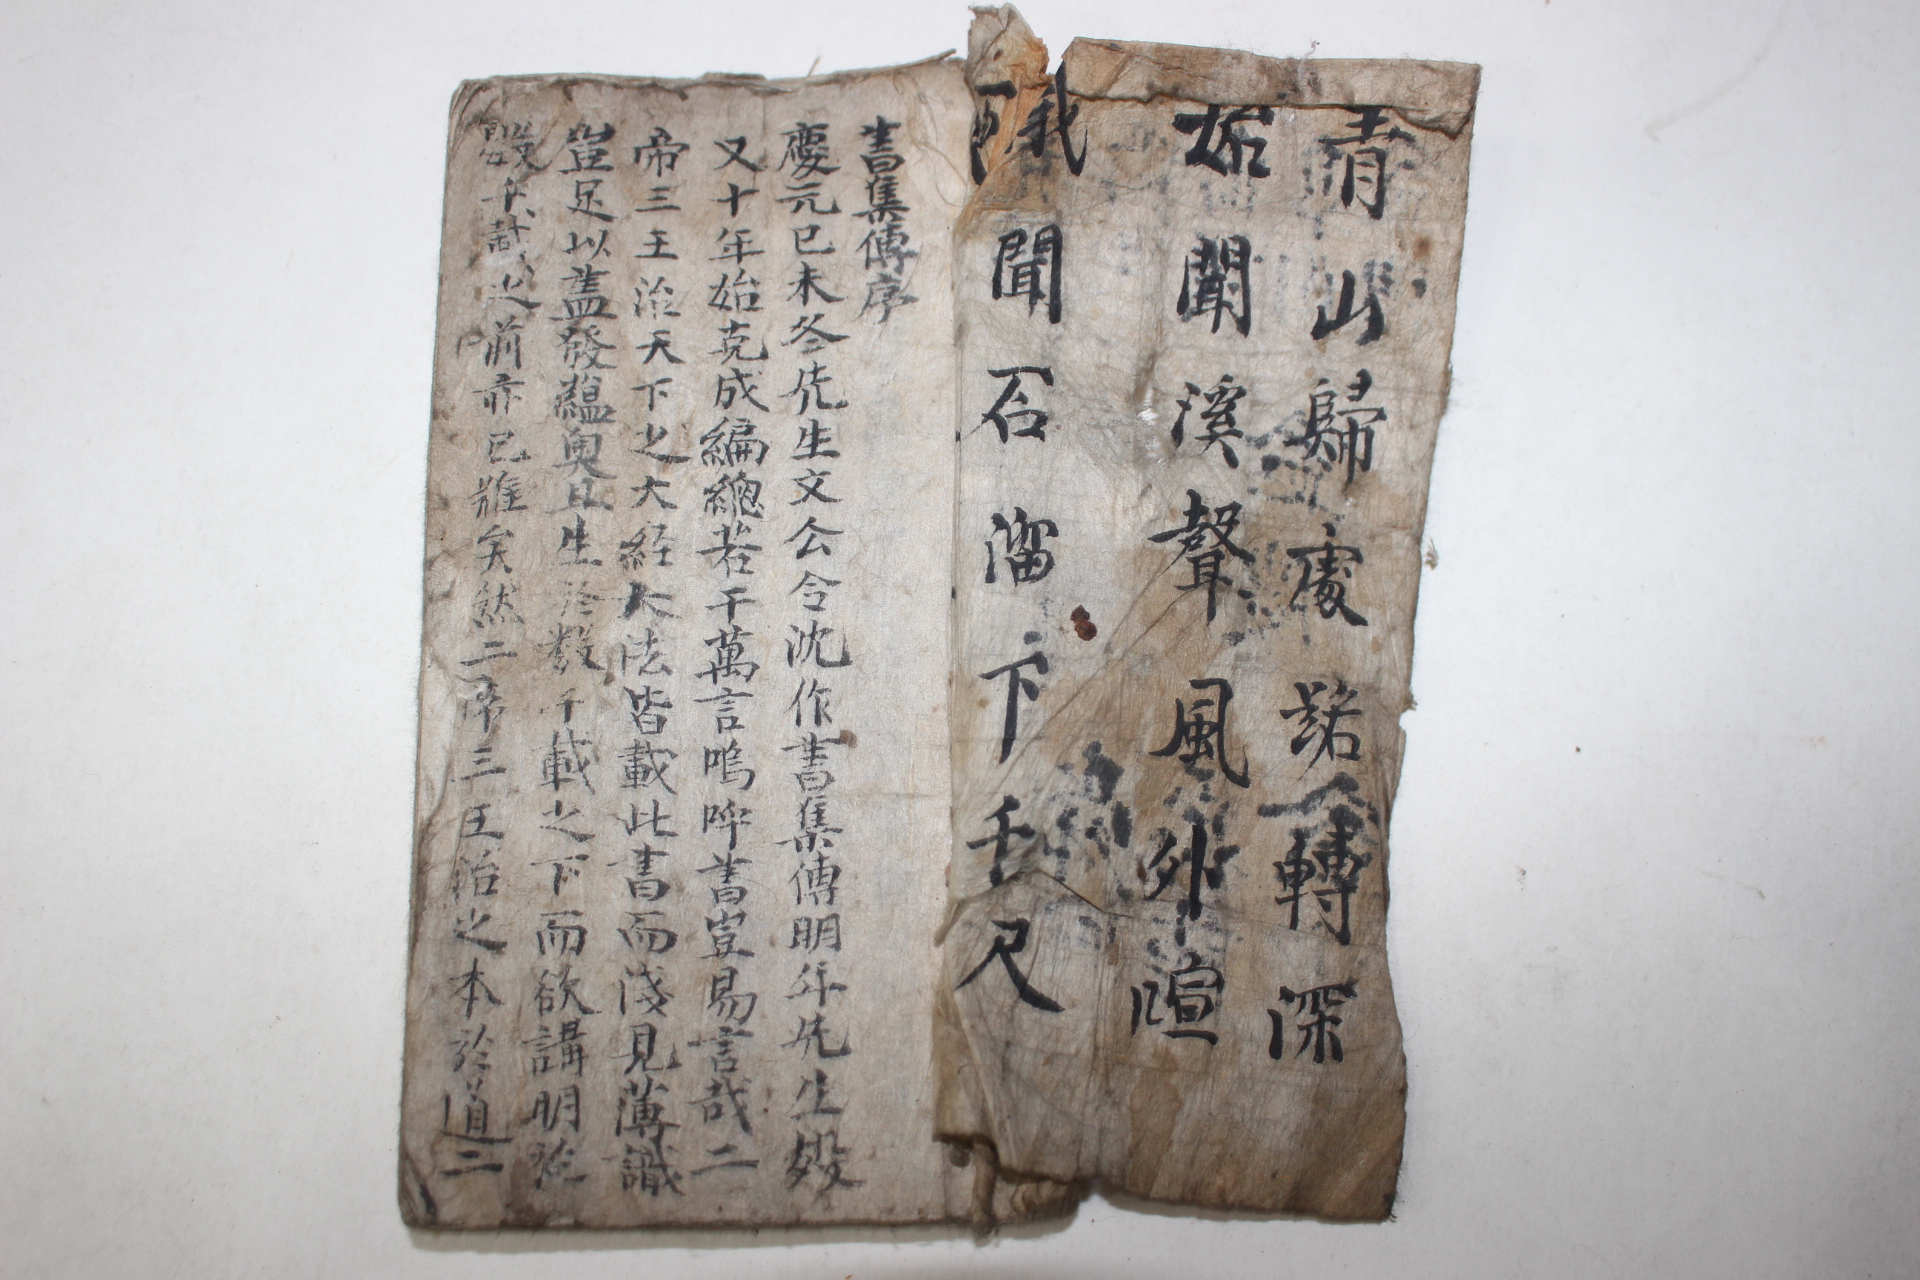 青山歸處轉深
始聞溪聲風外喧
聞石溜下千尺
書集傳序
慶元己未冬先生文公令沈作書集傳明年先生歿
又十年始克成編總若干萬言嗚呼書豈易言哉二
帝三王治天下之大經大法皆載此書而淺見薄識
豈足以盖發蘊奧且生於数千載之下而欲講明於
數千載之前亦已難矣然二帝三王治之本於道二